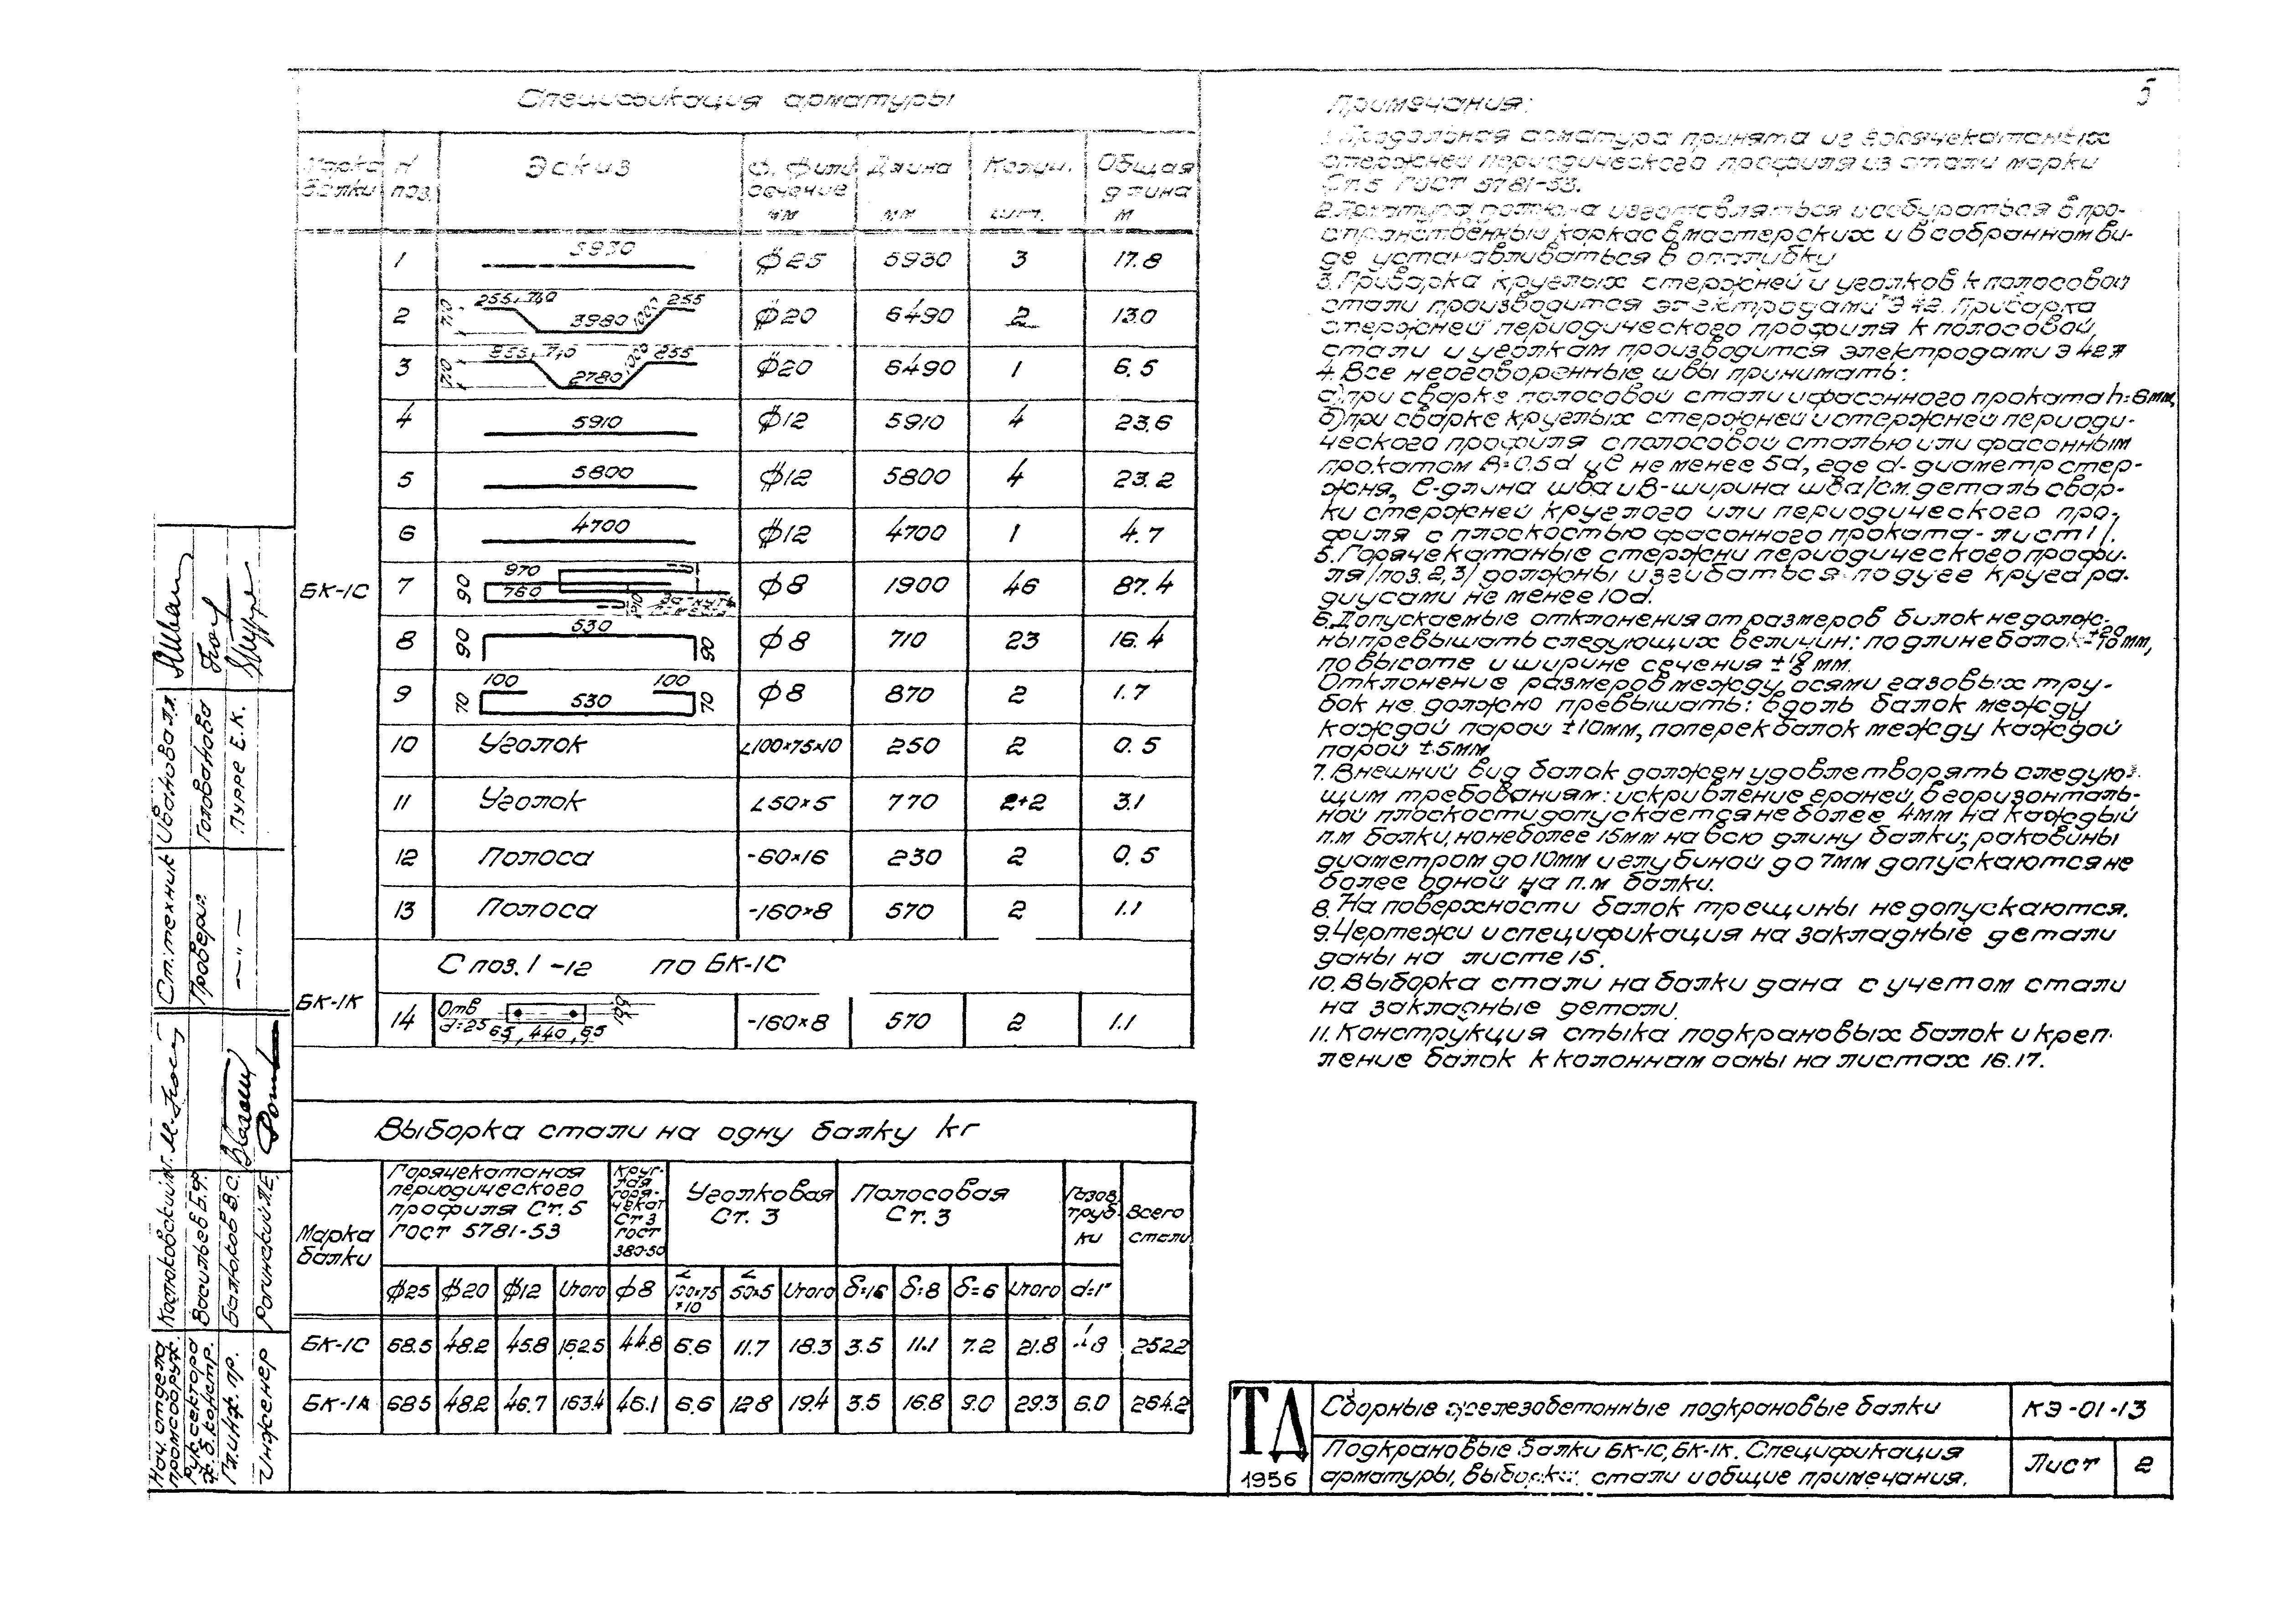 5
Спецификация арматуры
Марка балки
N поз.
Эскиз
ф. или сечение мм
Длина мм
Колич. шт.
Общая длина м
БК-1С
1 5930 ф25 5930 3 17.8
2 255 740 3980 1000 255 ф20 6490 2 13.0
3 855 710 2780 855 ф20 6490 1 6.5
4 5910 ф12 5910 4 23.6
5 5800 ф12 5800 4 23.2
6 4700 ф12 4700 1 4.7
7 90 970 760 ф8 1900 46 87.4
8 90 530 90 ф8 710 23 16.4
9 70 100 530 100 70 ф8 870 2 1.7
10 Уголок ∠100×75×10 250 2 0.5
11 Уголок ∠50×5 770 2+2 3.1
12 Полоса -60×16 230 2 0.5
13 Полоса -160×8 570 2 1.1
БК-1К
С поз. 1-12 по БК-1С
14 Отв d=25 65, 440, 65 -160×8 570 2 1.1
Выборка стали на одну балку кг
Марка балки
Горячекатаная периодического профиля Ст.5 ГОСТ 5781-53
Круглая горячекат Ст 3 ГОСТ 380-50
Уголковая Ст. 3
Полосовая Ст. 3
Газов. трубки
Всего стали
ф25 ф20 ф12 Итого ф8 ∠100×75×10 ∠50×5 Итого δ=16 δ=8 δ=6 Итого d=1"
БК-1С 68.5 48.2 45.8 162.5 44.8 6.6 11.7 18.3 3.5 11.1 7.2 21.8 252.2
БК-1А 68.5 48.2 46.7 163.4 46.1 6.6 12.8 19.4 3.5 16.8 9.0 29.3 6.0 264.2
Примечания:
1. Продольная арматура принята из горячекатаных
стержней периодического профиля из стали марки
Ст.5 ГОСТ 5781-53.
2. Арматура должна изготовляться и собираться в про-
странственный каркас в мастерских и в собранном ви-
де устанавливаться в опалубку
3. Приварка круглых стержней и уголков к полосовой
стали производится электродами Э 42. Приварка
стержней периодического профиля к полосовой
стали и уголкам производится электродами Э 42А
4. Все неоговоренные швы принимать:
а) при сварке полосовой стали и фасонного проката h=6мм,
б) при сварке круглых стержней и стержней периоди-
ческого профиля с полосовой сталью или фасонным
прокатом В=0.5d и ℓ не менее 5d, где d-диаметр стер-
жня, ℓ-длина шва и В-ширина шва /см. деталь свар-
ки стержней круглого или периодического про-
филя с плоскостью фасонного проката - лист 1/.
5. Горячекатаные стержни периодического профи-
ля /поз. 2, 3/ должны изгибаться по дуге круга ра-
диусами не менее 10d.
6. Допускаемые отклонения от размеров балок не долж-
ны превышать следующих величин: по длине балок +20 -10 мм,
по высоте и ширине сечения мм.
Отклонение размеров между осями газовых тру-
бок не должно превышать: вдоль балок между
каждой парой ±10мм, поперек балок между каждой
парой ±5мм
7. Внешний вид балок должен удовлетворять следую-
щим требованиям: искривление граней в горизонталь-
ной плоскости допускается не более 4мм на каждый
п.м балки, но не более 15мм на всю длину балки; раковины
диаметром до 10мм и глубиной до 7мм допускаются не
более одной на п.м балки.
8. На поверхности балок трещины не допускаются.
9. Чертежи и спецификация на закладные детали
даны на листе 15.
10. Выборка стали на балки дана с учетом стали
на закладные детали.
11. Конструкция стыка подкрановых балок и креп-
ление балок к колоннам даны на листах 16.17.
Ст. техник Иванова Л.Л.
Проверил Голованова
—"— Пурре Е.К.
Нач. отдела промсооруж. Костюковский
Рук. сектора ж.б. констр. Васильев Б.Ф.
Гл. инж. пр. Балюков В.С.
Инженер Рогинский Л.Е.
ТД
1956
Сборные железобетонные подкрановые балки
КЭ-01-13
Подкрановые балки БК-1С, БК-1К. Спецификация
арматуры, выборка стали и общие примечания.
Лист 2